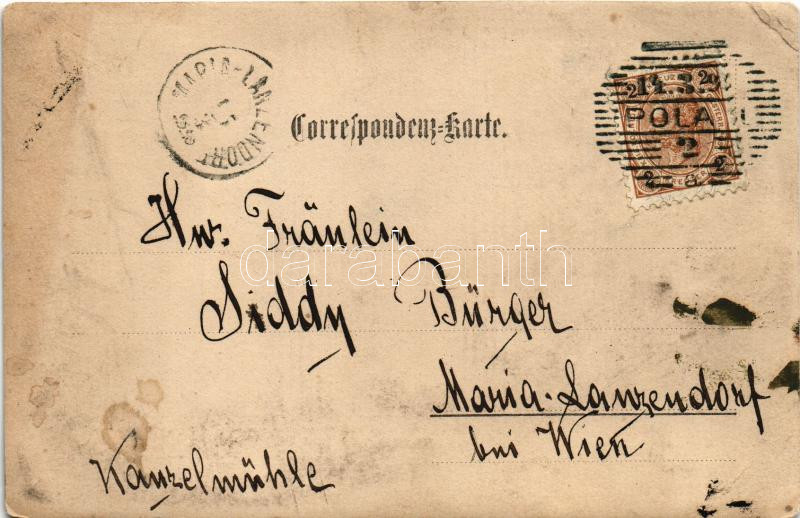 MARIA-LANZENDORF
Correspondenz-Karte.
POLA
2
Hw. Fräulein
darabanth
Siddy Bürger
Maria-Lanzendorf
bei Wien
Kanzelmühle